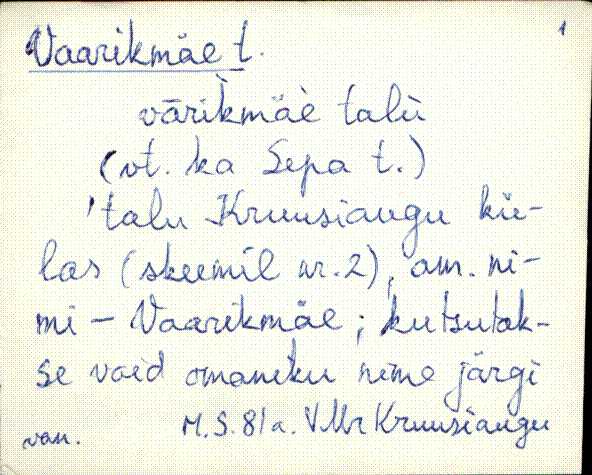 1
Vaarikmäe t.
vārikmäè talù
(vt. ka Sepa t.)
'talu Kruusiaugu kü-
las (skeemil nr. 2), am. ni-
mi – Vaarikmäe; kutsutak-
se vaid omaniku nime järgi
van. M.S. 81 a. VMr Kruusiaugu